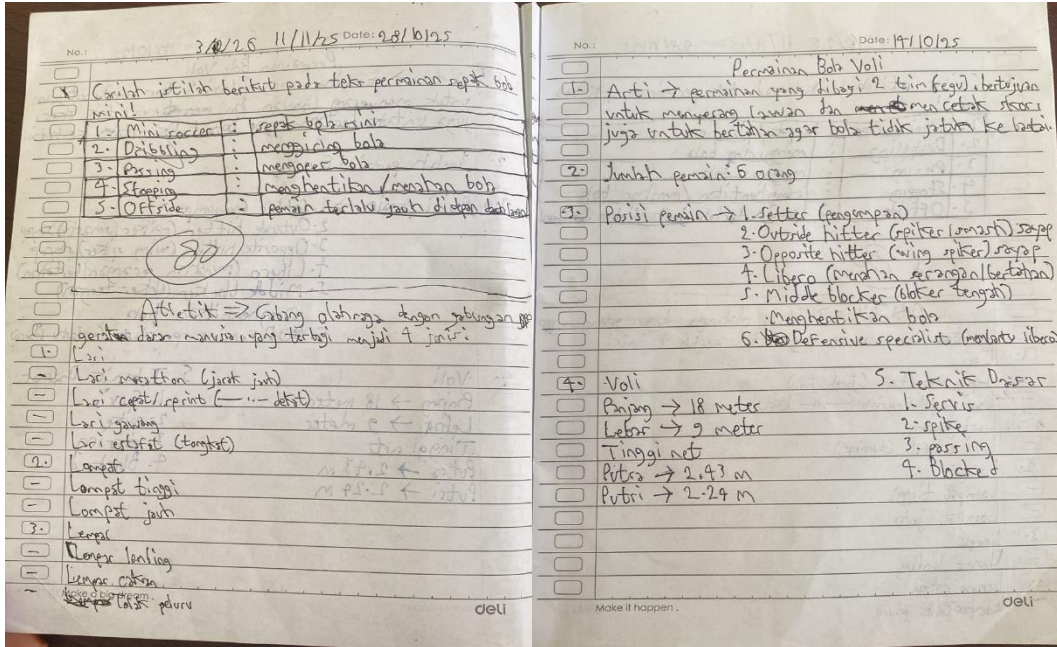 No.: 3/2/26 11/11/25 Date: 28/10/25
Carilah istilah berikut pada teks permainan sepak bola
mini!
1. Mini soccer : sepak bola mini
2. Dribbling : menggiring bola
3. Passing : mengoper bola
4. Stopping : menghentikan/menahan bola
5. Offside : pemain terlalu jauh di depan
80
Atletik => Cabang olahraga dengan gabungan
gerakan dasar manusia, yang terbagi menjadi 4 jenis:
1. Lari
- Lari marathon (jarak jauh)
- Lari cepat/sprint (—"— dekat)
- Lari gawang
- Lari estafet (tongkat)
2. Lompat
- Lompat tinggi
- Lompat jauh
3. Lempar
- Lempar lembing
- Lempar cakram
- Tolak peluru
Make a big dream.
deli
No.: Date: 14/10/25
Permainan Bola Voli
1. Arti → permainan yang dibagi 2 tim (regu), bertujuan
untuk menyerang lawan dan mencetak skor,
juga untuk bertahan agar bola tidak jatuh ke lantai.
2. Jumlah pemain: 6 orang
3. Posisi pemain → 1. Setter (pengumpan)
2. Outside hitter (spiker/smash) sayap
3. Opposite hitter (wing spiker) sayap
4. Libero (menahan serangan/bertahan)
5. Middle blocker (bloker tengah)
. Menghentikan bola
6. Defensive specialist (membantu libero)
4. Voli
Panjang → 18 meter
Lebar → 9 meter
Tinggi net
Putra → 2.43 m
Putri → 2.24 m
5. Teknik Dasar
1. Servis
2. spike
3. passing
4. Blocked
Make it happen.
deli